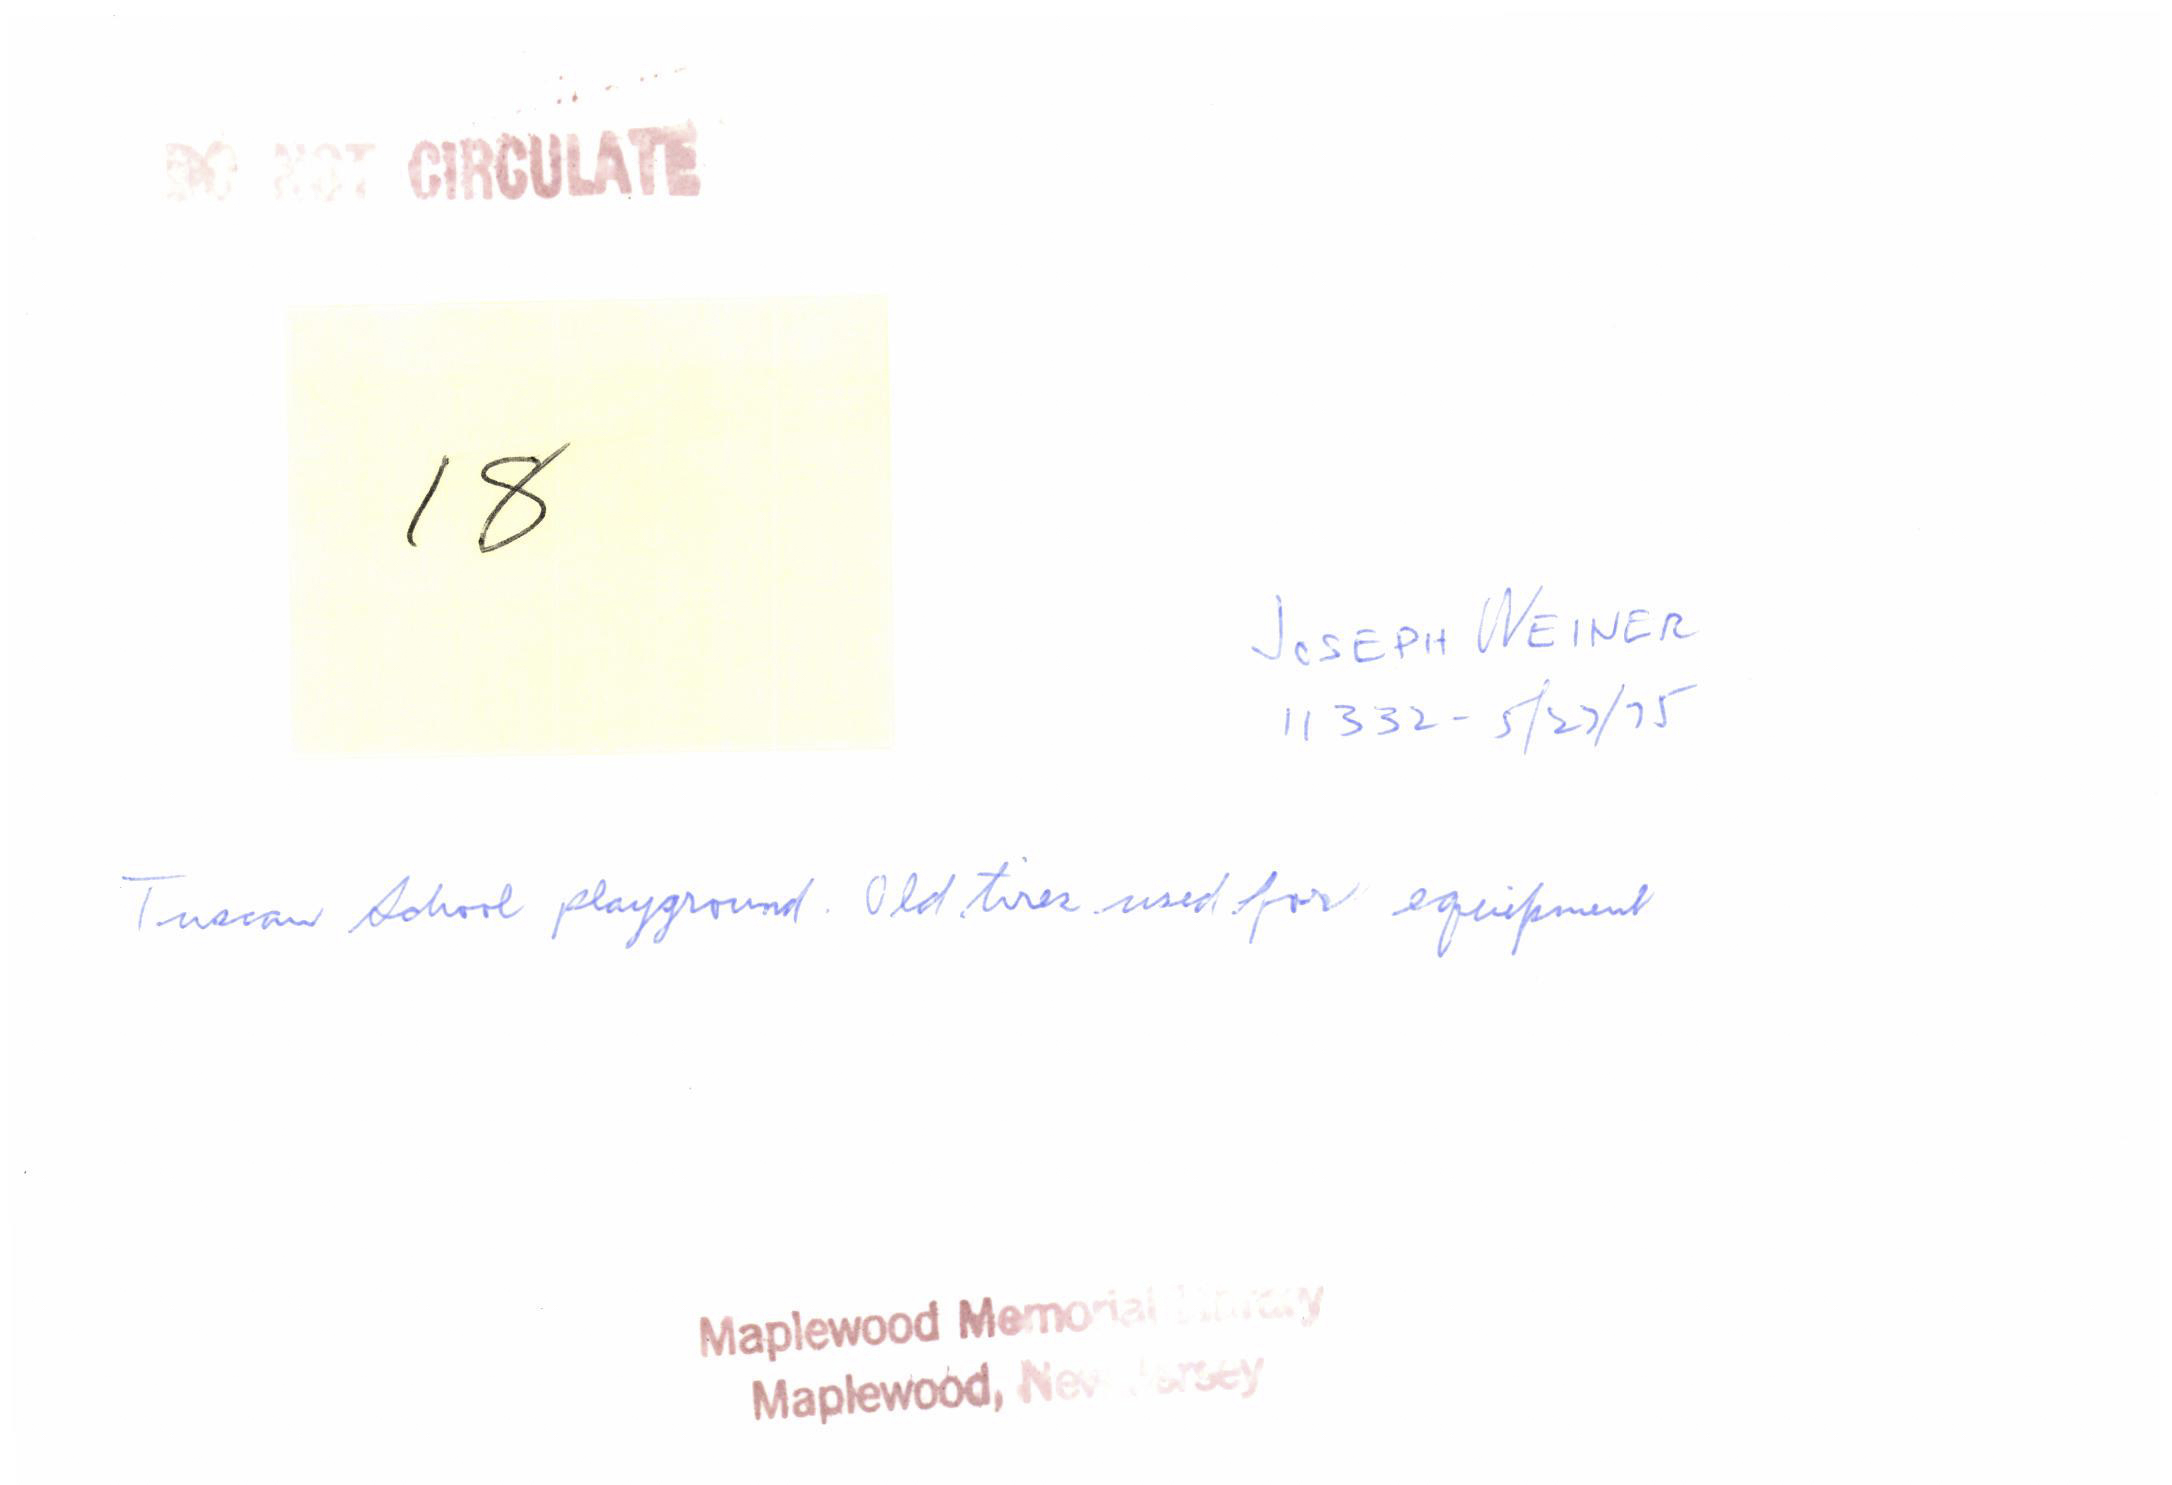 DO NOT CIRCULATE
18
JOSEPH WEINER
11332 - 5/27/75
Tuscan School playground. Old tires used for equipment
Maplewood Memorial Library
Maplewood, New Jersey